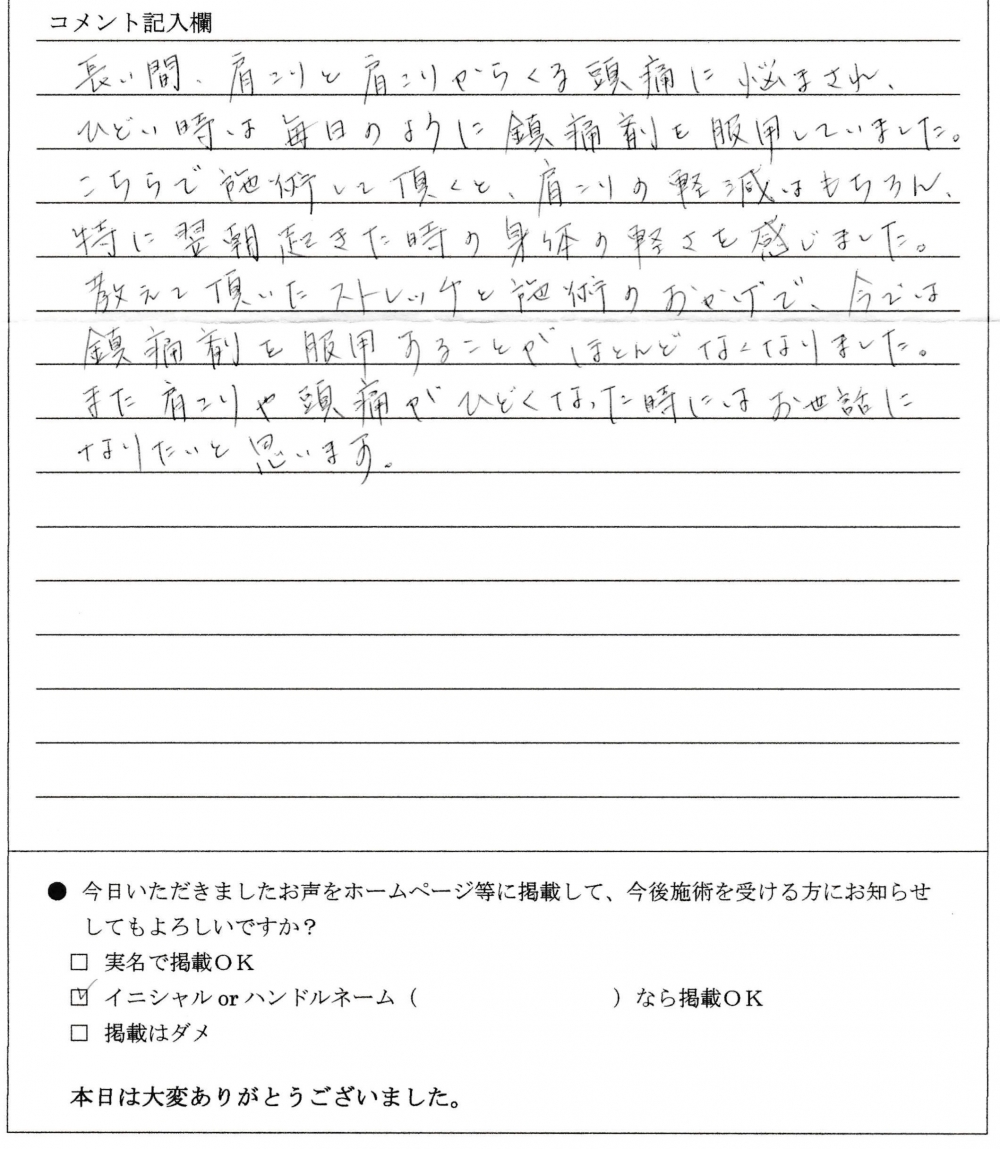 コメント記入欄
長い間、肩こりと肩こりからくる頭痛に悩まされ、
ひどい時は毎日のように鎮痛剤を服用していました。
こちらで施術して頂くと、肩こりの軽減はもちろん、
特に翌朝起きた時の身体の軽さを感じました。
教えて頂いたストレッチと施術のおかげで、今では
鎮痛剤を服用することがほとんどなくなりました。
また肩こりや頭痛がひどくなった時にはお世話に
なりたいと思います。
● 今日いただきましたお声をホームページ等に掲載して、今後施術を受ける方にお知らせ
してもよろしいですか？
□ 実名で掲載ＯＫ
☑ イニシャル or ハンドルネーム（　　　　　　　　　）なら掲載ＯＫ
□ 掲載はダメ
本日は大変ありがとうございました。